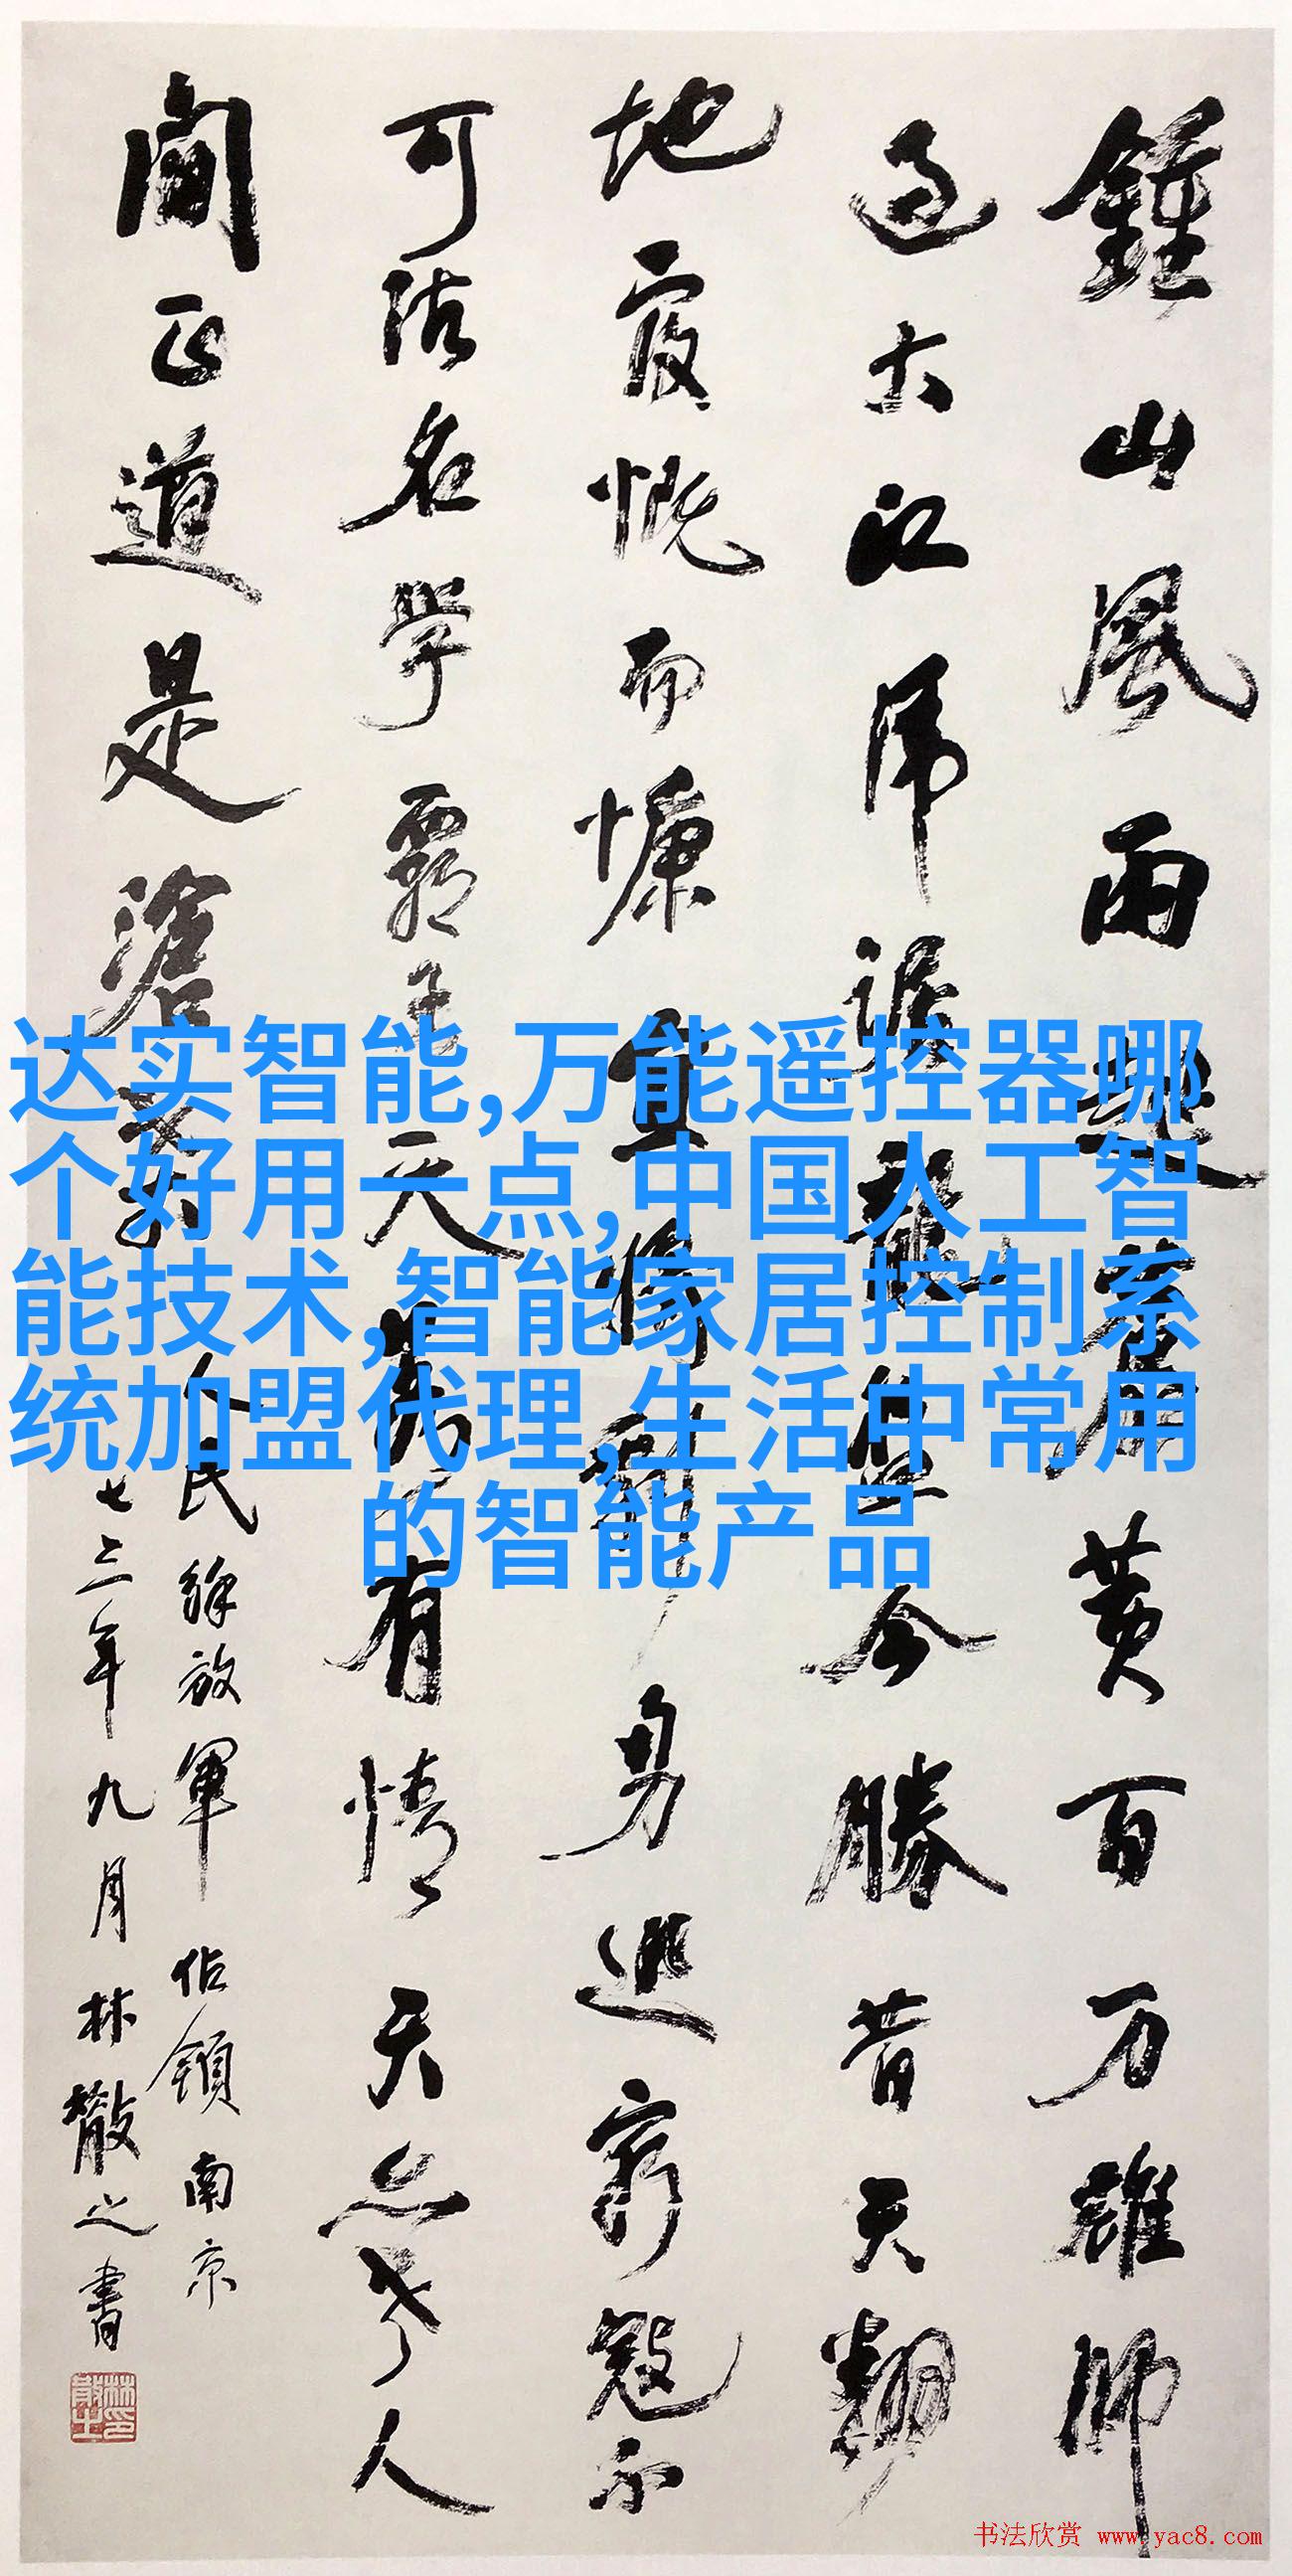 鍾山風雨起蒼黃百万雄師
过大江虎踞龍盤今勝昔天翻
地覆慨而慷宜將剩勇追窮寇不
可沽名學霸王天若有情天亦老人
間正道是滄桑
人民解放軍佔領南京
七三年九月林散之書
林散之印
达实智能,万能遥控器哪
个好用一点,中国人工智
能技术,智能家居控制系
统加盟代理,生活中常用
的智能产品
书法欣赏 www.yac8.com